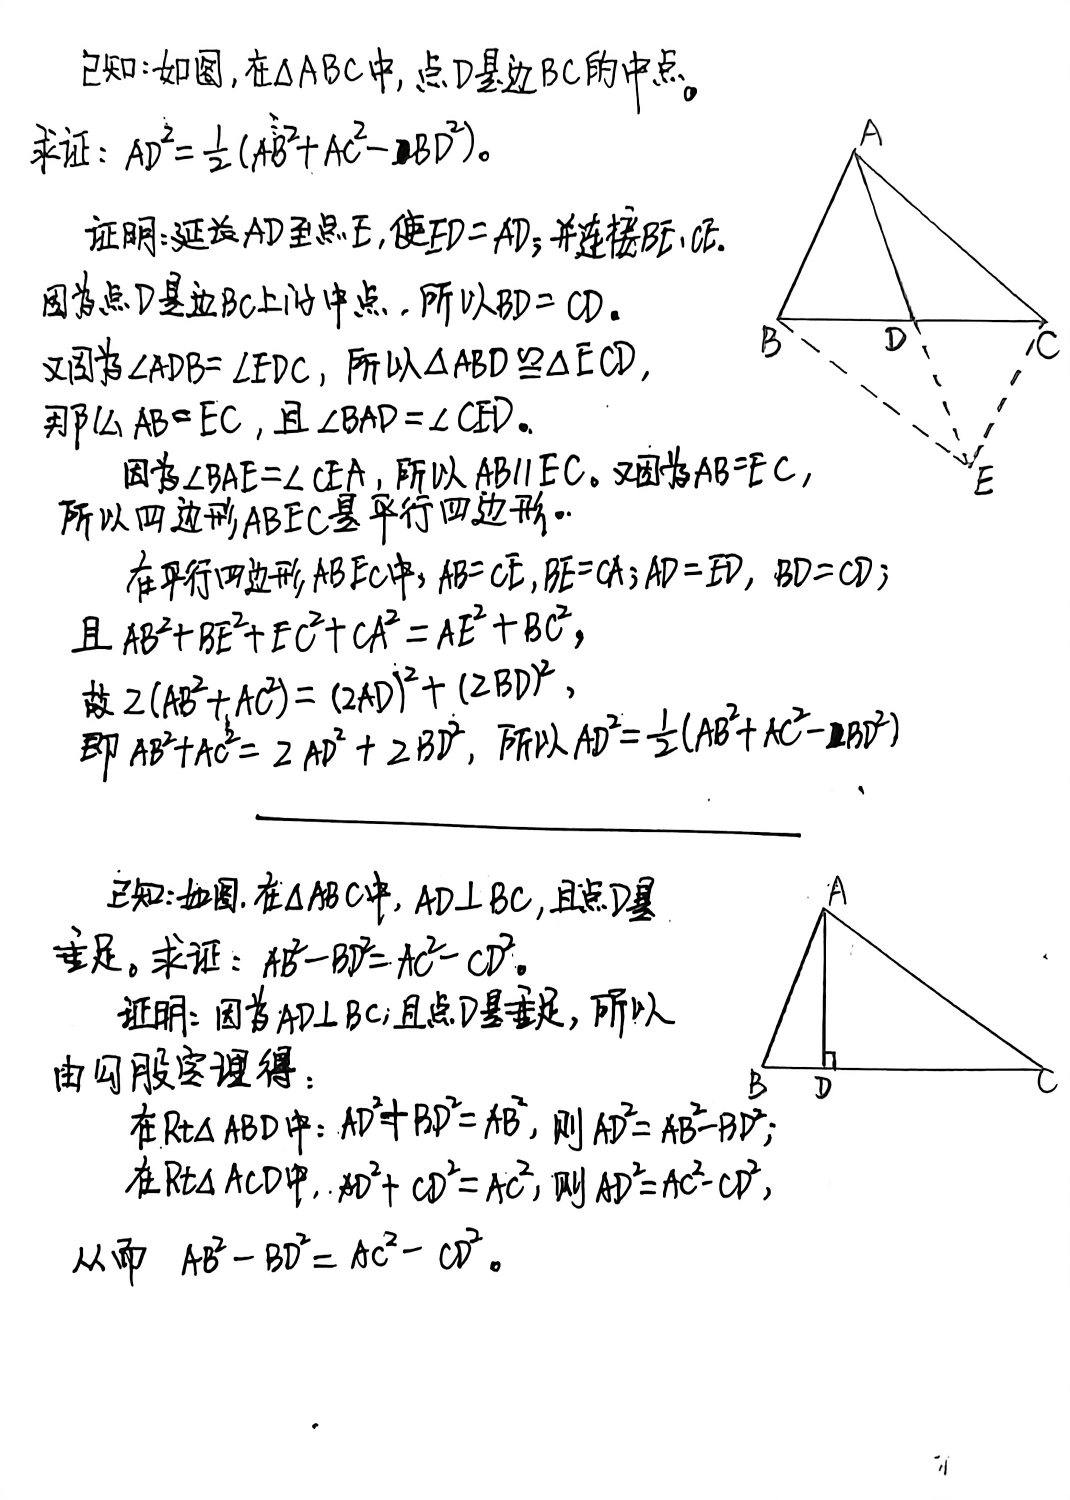 已知:如图,在△ABC中,点D是边BC的中点。
求证: AD²=½(AB²+AC²-2BD²)。
证明:延长AD至点E,使ED=AD;并连接BE、CE.
因为点D是边BC上的中点.所以BD=CD.
又因为∠ADB=∠EDC,所以△ABD≌△ECD,
那么AB=EC,且∠BAD=∠CED.
因为∠BAE=∠CEA,所以AB//EC。又因为AB=EC,
所以四边形ABEC是平行四边形.
在平行四边形ABEC中,AB=CE,BE=CA;AD=ED,BD=CD;
且AB²+BE²+EC²+CA²=AE²+BC²,
故2(AB²+AC²)=(2AD)²+(2BD)²,
即AB²+AC²=2AD²+2BD²,所以AD²=½(AB²+AC²-2BD²)
A
B
D
C
E
已知:如图.在△ABC中,AD⊥BC,且点D是
垂足。求证:AB²-BD²=AC²-CD²。
证明:因为AD⊥BC;且点D是垂足,所以
由勾股定理得:
在Rt△ABD中:AD²+BD²=AB²,则AD²=AB²-BD²;
在Rt△ACD中,AD²+CD²=AC²,则AD²=AC²-CD²,
从而 AB²-BD²=AC²-CD²。
A
B
D
C